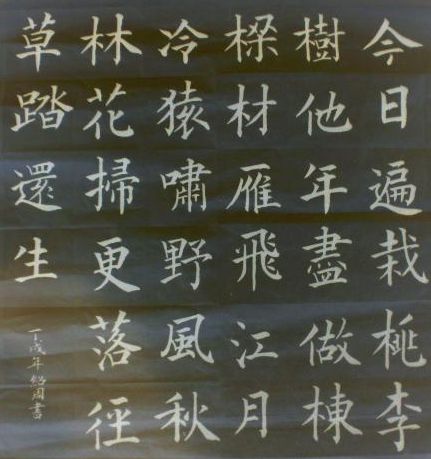 今日遍栽桃李
樹他年盡做棟
樑材雁飛江月
冷猿嘯野風秋
林花掃更落徑
草踏還生
戌年紹周書